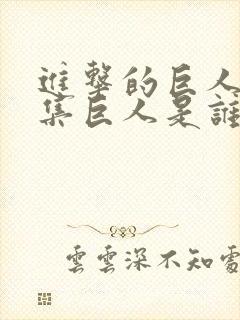 進擊的巨人
集巨人是誰
雲雲深不知處